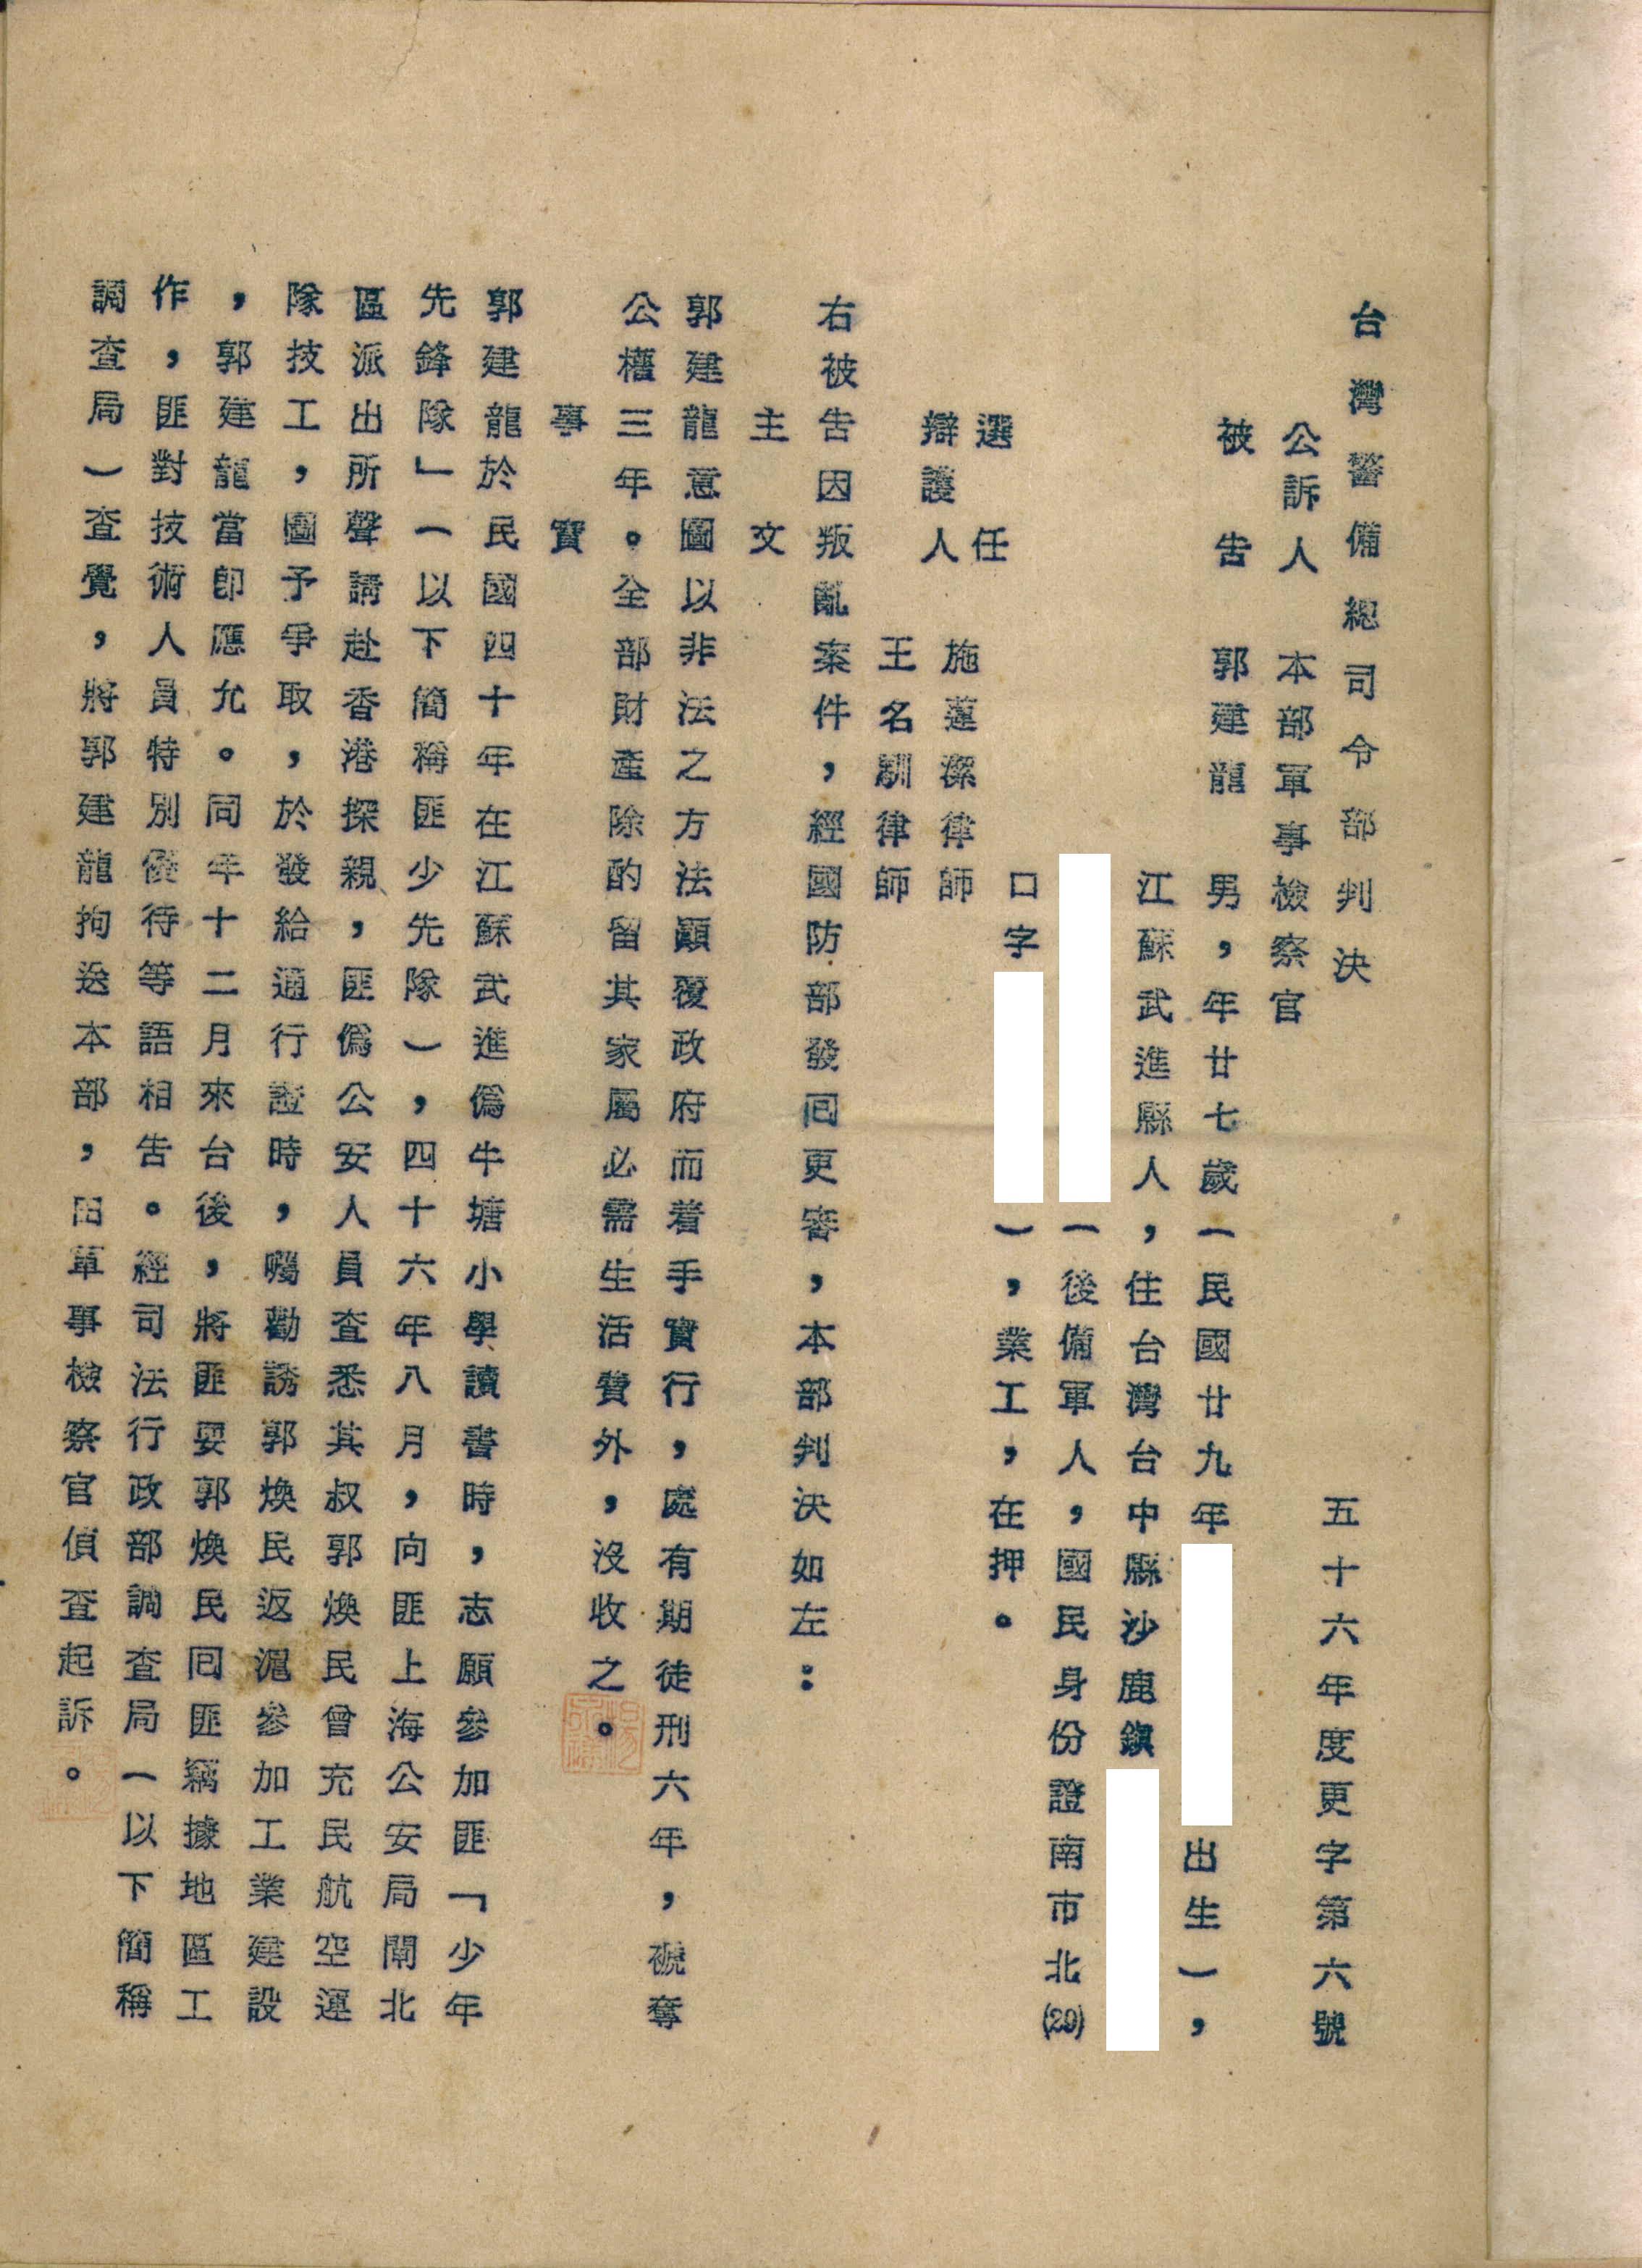 台灣警備總司令部判決
五十六年度更字第六號
公訴人　本部軍事檢察官
被告　郭建龍　男，年廿七歲（民國廿九年
出生），
江蘇武進縣人，住台灣台中縣沙鹿鎮
（後備軍人，國民身份證南市北(29)
口字
），業工，在押。
選任
辯護人
施蓮潔律師
王名馴律師
右被告因叛亂案件，經國防部發回更審，本部判決如左：
主文
郭建龍意圖以非法之方法顛覆政府而着手實行，處有期徒刑六年，褫奪
公權三年。全部財產除酌留其家屬必需生活費外，沒收之。
事實
郭建龍於民國四十年在江蘇武進偽牛塘小學讀書時，志願參加匪「少年
先鋒隊」（以下簡稱匪少先隊），四十六年八月，向匪上海公安局閘北
區派出所聲請赴香港探親，匪偽公安人員查悉其叔郭煥民曾充民航空運
隊技工，圖予爭取，於發給通行證時，囑勸誘郭煥民返滬參加工業建設
，郭建龍當即應允。同年十二月來台後，將匪要郭煥民回匪竊據地區工
作，匪對技術人員特別優待等語相告。經司法行政部調查局（以下簡稱
調查局）查覺，將郭建龍拘送本部，由軍事檢察官偵查起訴。